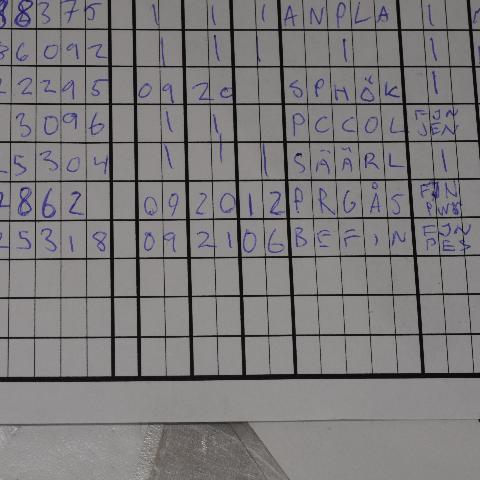 88375 | | | ANPLA |
36092 | | | | |
22295 09 20 SPHÖK |
3096 | | PCCOL FJN JEN
25304 | | | SÄÄRL |
2862 09 20 12 PRGÅS FJN
25318 09 21 06 BEFIN FJN PES